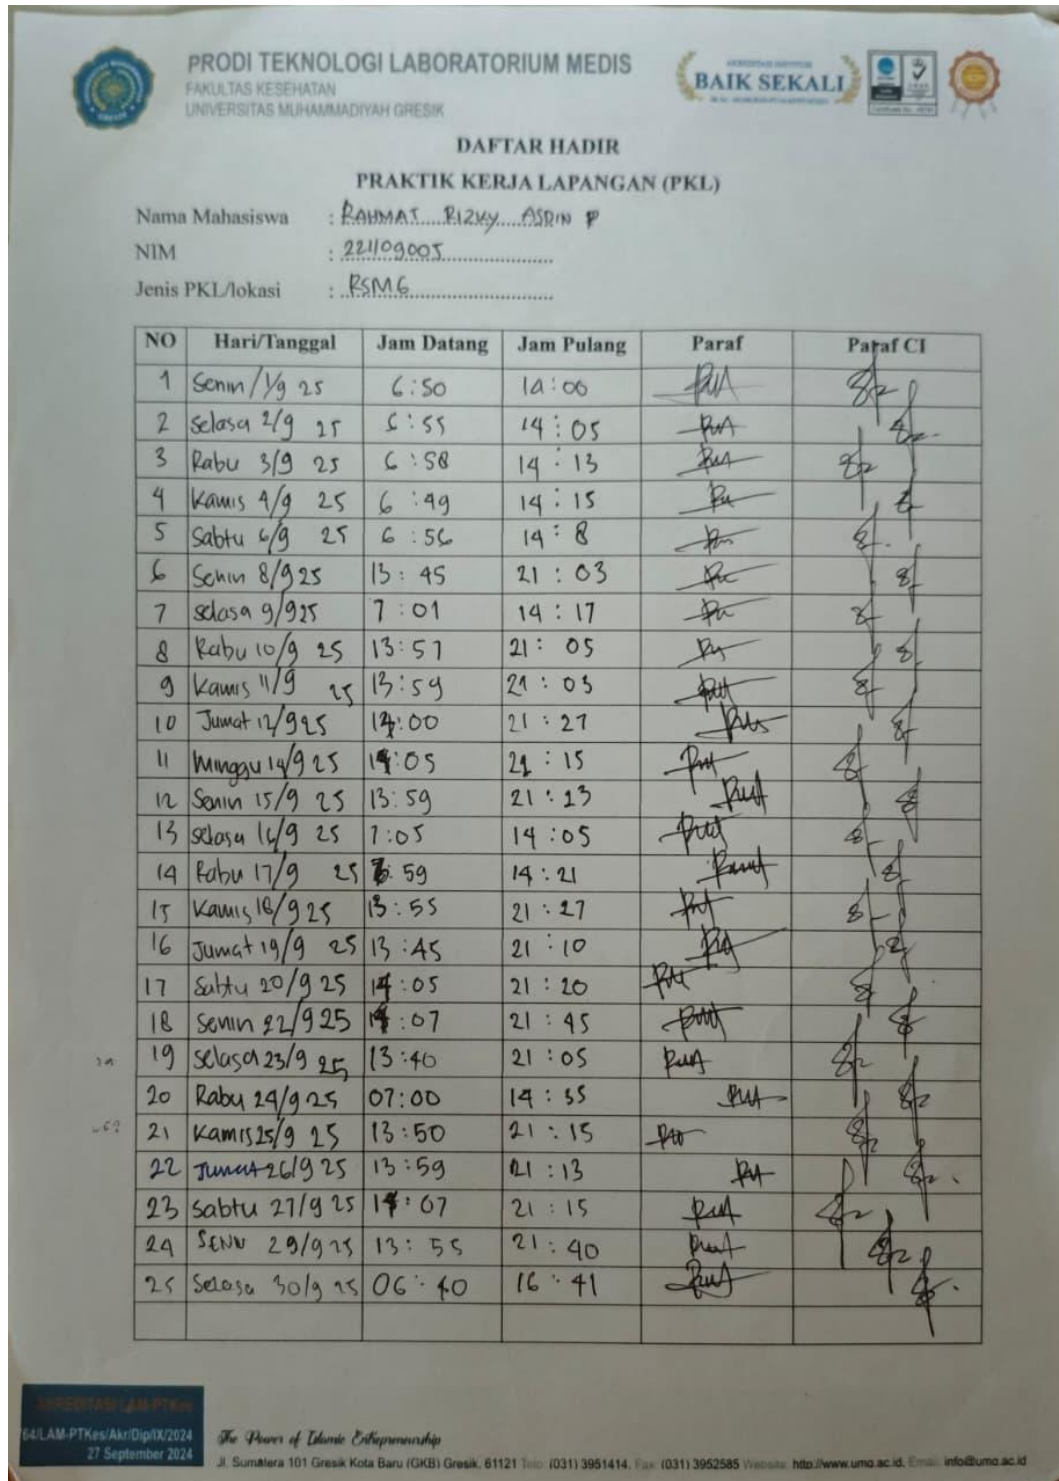 PRODI TEKNOLOGI LABORATORIUM MEDIS
FAKULTAS KESEHATAN
UNIVERSITAS MUHAMMADIYAH GRESIK
AKREDITASI INSTITUSI
BAIK SEKALI
DAFTAR HADIR
PRAKTIK KERJA LAPANGAN (PKL)
Nama Mahasiswa : RAHMAT RIZKY ASDIN P
NIM : 221109005
Jenis PKL/lokasi : RSMG
NO Hari/Tanggal Jam Datang Jam Pulang Paraf Paraf CI
1 Senin/1/9 25 6:50 14:00
2 Selasa 2/9 25 6:55 14:05
3 Rabu 3/9 25 6:58 14:13
4 Kamis 4/9 25 6:49 14:15
5 Sabtu 6/9 25 6:56 14:8
6 Senin 8/9 25 13:45 21:03
7 selasa 9/9 25 7:01 14:17
8 Rabu 10/9 25 13:57 21:05
9 Kamis 11/9 25 13:59 21:03
10 Jumat 12/9 25 14:00 21:27
11 Minggu 14/9 25 14:05 21:15
12 Senin 15/9 25 13:59 21:23
13 selasa 16/9 25 7:05 14:05
14 Rabu 17/9 25 6:59 14:21
15 Kamis 18/9 25 13:55 21:27
16 Jumat 19/9 25 13:45 21:10
17 Sabtu 20/9 25 14:05 21:20
18 Senin 22/9 25 14:07 21:45
19 selasa 23/9 25 13:40 21:05
20 Rabu 24/9 25 07:00 14:35
21 Kamis 25/9 25 13:50 21:15
22 Jumat 26/9 25 13:59 21:13
23 Sabtu 27/9 25 14:07 21:15
24 SENIN 29/9 25 13:55 21:40
25 Selasa 30/9 25 06:40 16:41
AKREDITASI LAM-PTKes
64/LAM-PTKes/Akr/Dip/IX/2024
27 September 2024
The Power of Islamic Entrepreneurship
Jl. Sumatera 101 Gresik Kota Baru (GKB) Gresik, 61121 Telp: (031) 3951414, Fax: (031) 3952585 Website: http://www.umg.ac.id, Email: info@umg.ac.id